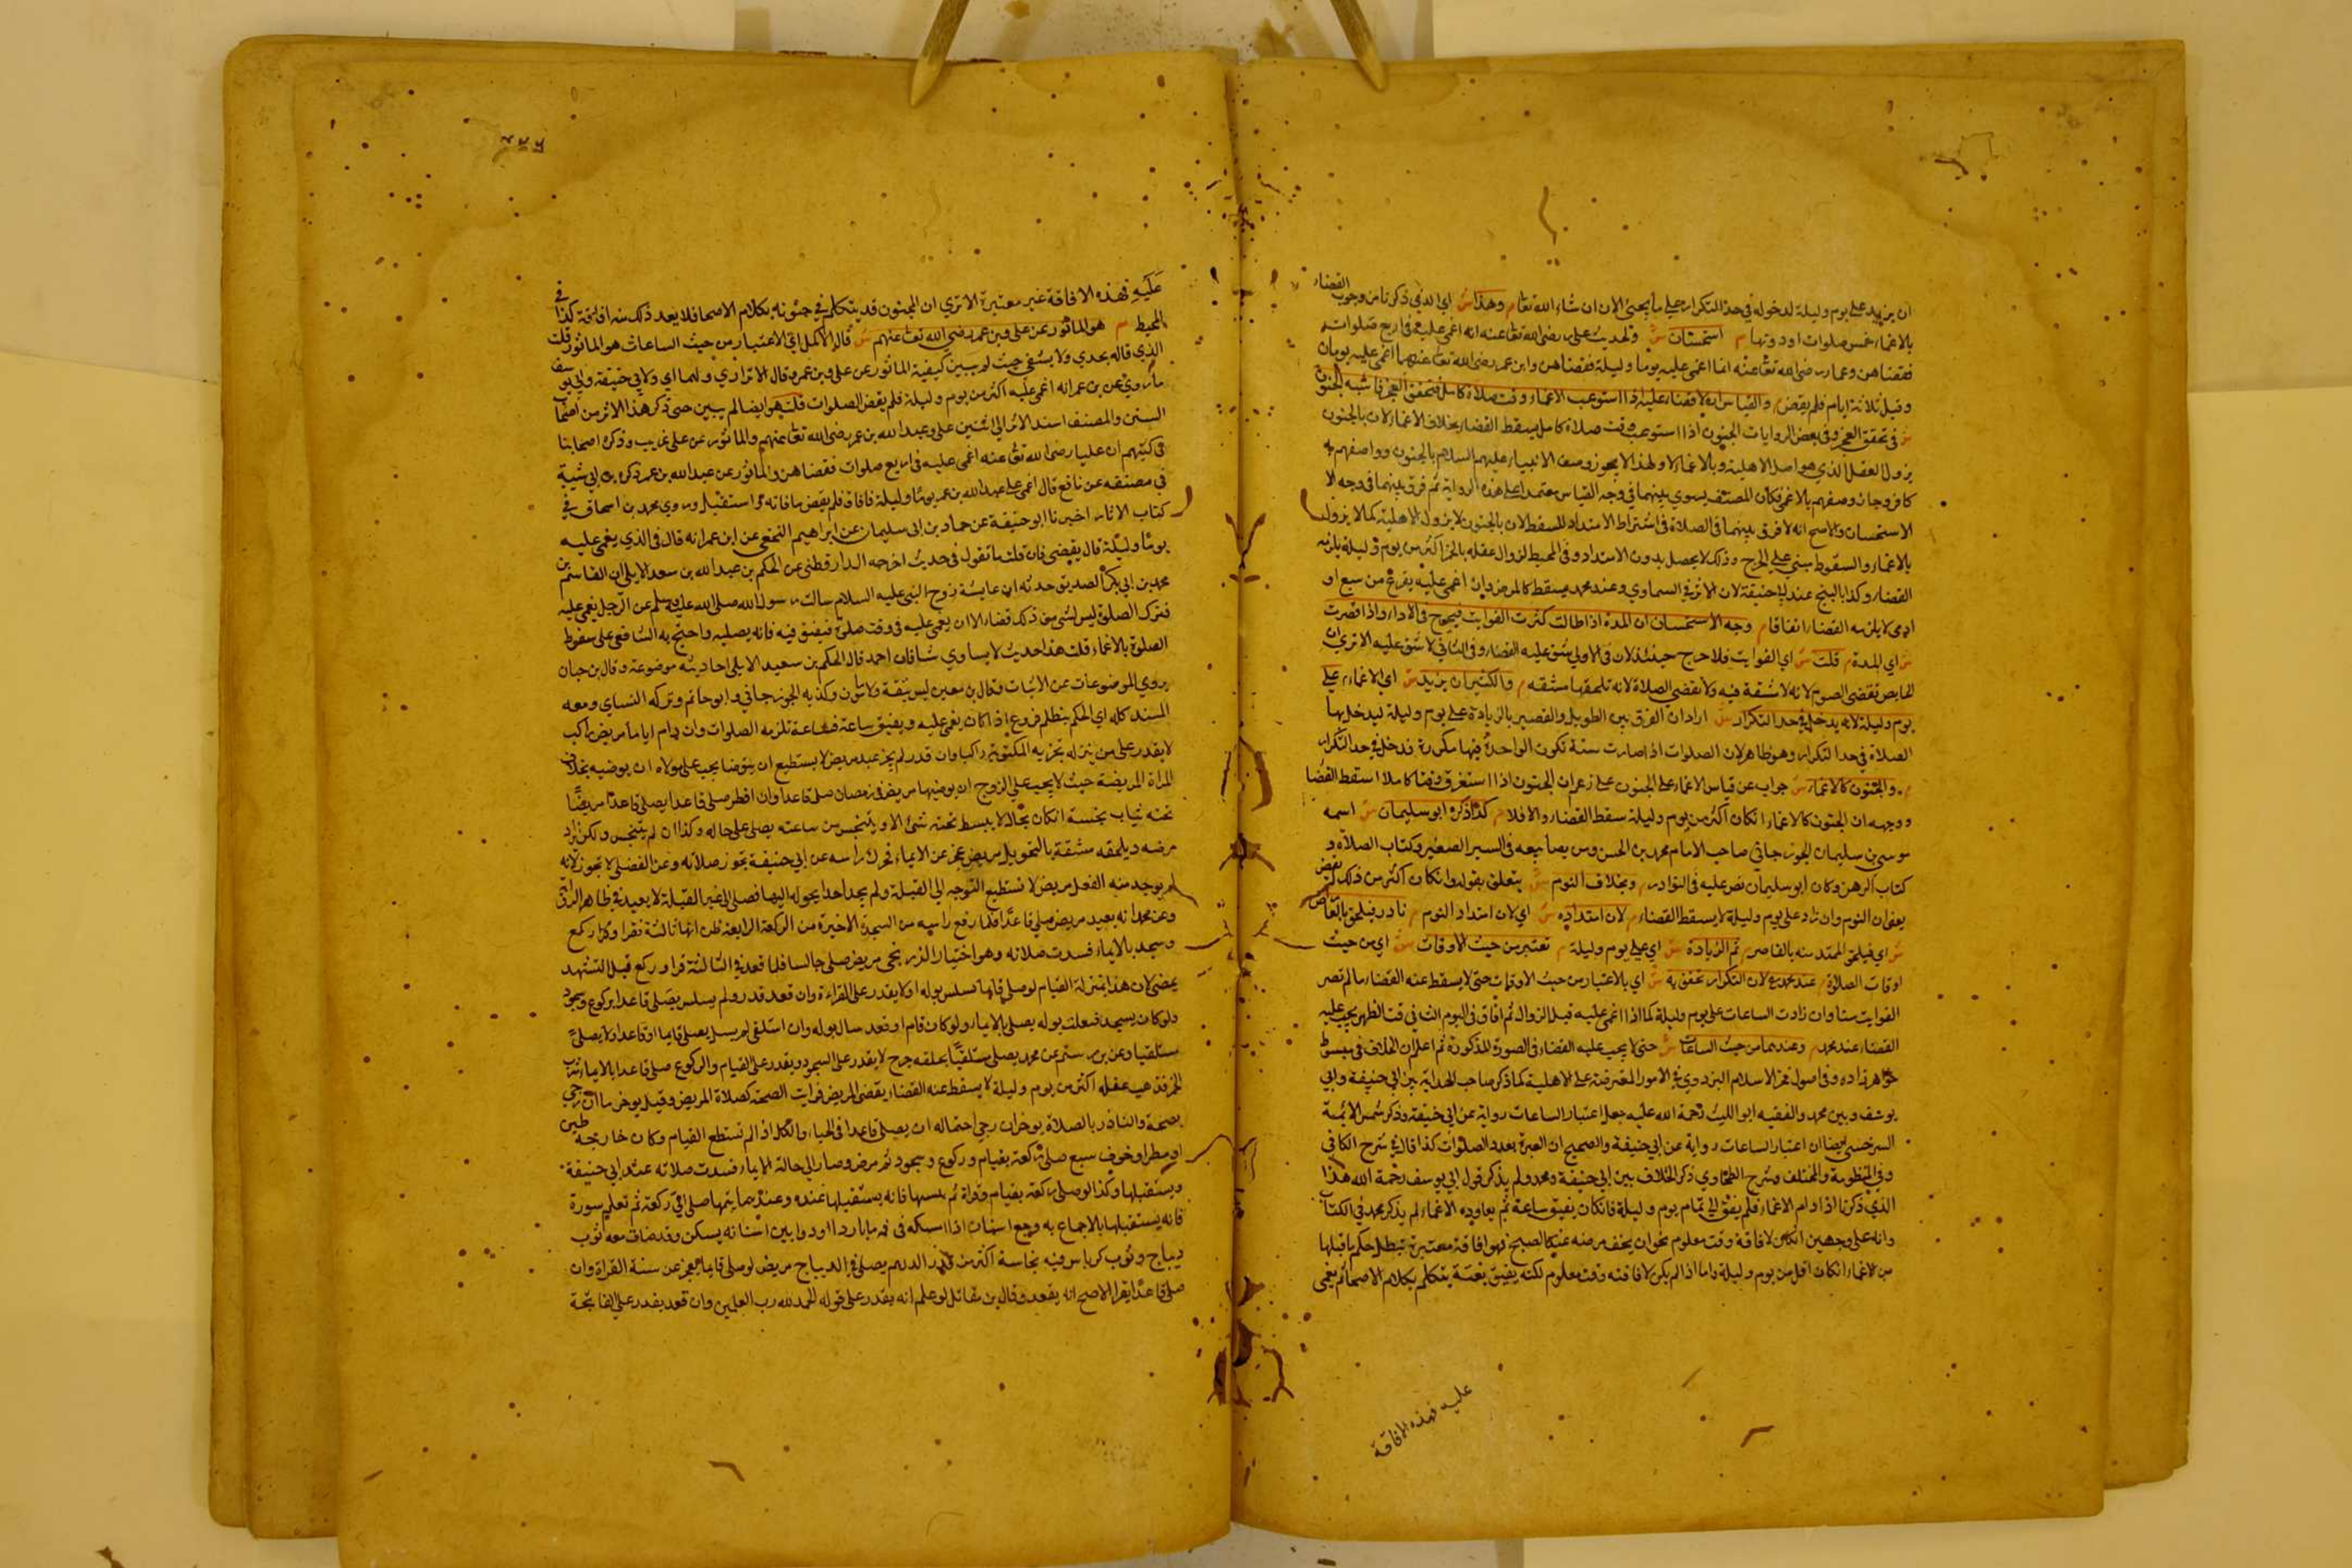 ان يزيد على يوم وليلة لدخوله في حد التكرار على ما يجئ الان ان شاء الله تعا م وهذا ش اي الذي ذكرنا من وجوب القضاء
بالاغماء خمس صلوات او دونها م استحسان ش ولحديث على رضي الله تعا عنه انه اغمى عليه في اربع صلوات
فقضاهن وعمار رضي الله تعا عنه انما اغمى عليه يوما وليلة فقضاهن وابن عمر رضي الله تعا عنهما اغمى عليه يومان
وقيل ثلاثة ايام فلم يقض م والقياس ان لا قضاء عليه اذا استوعب الاغماء وقت صلاة كاملا فتحقق العجز فاشبه الجنون
ش في تحقق العجز وفى بعض الروايات الجنون اذا استوعب وقت صلاة كامل يسقط القضاء بخلاف الاغماء لان بالجنون
يزول العقل الذي هو اصل الاهلية وبالاغماء لا ولهذا لا يجوز وصف الانبياء عليهم السلام بالجنون وواصفهم به
كافر وجاز وصفهم بالاغماء فكان المصنف يسوي بينهما في وجه القياس معتمدا على هذه الرواية ثم فرق بينهما في وجه الا
الاستحسان والاصح انه لا فرق بينهما في الصلاة في اشتراط الامتداد للسقط لان بالجنون لا يزول الاهلية كما لا يزول
بالاغماء والسقوط مبني على الحرج وذلك لا يحصل بدون الامتداد وفى المحيط لو زال عقله بالخمر اكثر من يوم وليلة يلزمه
القضاء وكذا بالبنج عند ابي حنيفة لان الاثر في السماوي وعند محمد يسقط كالمرض وان اغمى عليه بفزع من سبع او
ادمى لا يلزمه القضاء اتفاقا م وجه الاستحسان ان المدة اذا طالت كثرت الفوايت فيحرج في الاداء واذا قصرت
ش اي المدة م قلت ش اي الفوايت فلا حرج حينئذ لان في الاولى شق عليه القضاء وفى الثاني لا شق عليه الا ترى ان
الحايض تقضى الصوم لانه لا مشقة فيه ولا تقضى الصلاة لانه تلحقها مشقة م والكثير ان يزيد ش اي الاغماء م على
يوم وليلة لانه يدخل في حد التكرار ش اراد ان الفرق بين الطويل والقصير بالزيادة على يوم وليلة ليدخل بها
الصلاة في حد التكرار وهو ظاهر لان الصلوات اذا صارت ستة تكون الواحدة فيها مكررة فدخل في حد التكرار
م والجنون كالاغماء ش جواب عن قياس الاغماء على الجنون على زعم ان الجنون اذا استغرق وقتا كاملا اسقط القضا
ووجهه ان الجنون كالاغماء انكان اكثر من يوم وليلة سقط القضاء والا فلا م كذا ذكره ابو سليمان ش اسمه
موسى بن سليمان الجوزجاني صاحب الامام محمد بن الحسن ومن يصانيعه في السير الصغير وكتاب الصلاة و
كتاب الرهن وكان ابو سليمان نص عليه في النوادر م وبخلاف النوم ش يتعلق بقوله وانكان اكثر من ذلك لم يقض
يعنى ان النوم وان زاد على يوم وليلة لا يسقط القضاء م لان امتداده ش اي لان امتداد النوم م نادر فيلحق بالقاصر
ش اي فيلحق الممتد منه بالقاصر م ثم الزيادة ش اي على يوم وليلة م تعتبر من حيث الاوقات ش اي من حيث
اوقات الصلاة م عند محمد لان التكرار تحقق به ش اي بالاعتبار من حيث الاوقات حتى لا يسقط عنه القضاء ما لم تصر
الفوايت ستا وان زادت الساعات على يوم وليلة كما اذا اغمى عليه قبل الزوال ثم افاق في اليوم الثاني وقت الظهر يجب عليه
القضاء عند محمد م وعندهما من حيث الساعات ش حتى لا يجب عليه القضاء في الصورة المذكورة ثم اعلم ان الخلاف في مبسوط
خواهر زاده وفى اصول فخر الاسلام البزدوي في الامور المعترضة على الاهلية كما ذكر صاحب الهداية بين ابي حنيفة وابي
يوسف وبين محمد والفقيه ابو الليث رحمة الله عليه جعل اعتبار الساعات رواية عن ابي حنيفة وذكر شمس الائمة
السرخسى ايضا ان اعتبار الساعات رواية عن ابي حنيفة والصحيح ان العبرة بعدد الصلوات كذا قال في شرح الكافى
وفى المنظومة والمختلف وشرح الطحاوي ذكر الخلاف بين ابي حنيفة ومحمد ولم يذكر قول ابي يوسف رحمة الله هذا
الذي ذكرنا اذا دام الاغماء فلم يفق الى تمام يوم وليلة فانكان يفيق ساعة ثم يعاوده الاغماء لم يذكر محمد في الكتاب
وانه على وجهين انكان لافاقة وقت معلوم نحو ان يخف مرضه عند الصبح فهو افاقة معتبرة تبطل حكم ما قبلها
من الاغماء انكان اقل من يوم وليلة واما اذا لم يكن لافاقته وقت معلوم لكنه يفيق بغتة يتكلم بكلام الاصحاء ثم يغمى
عليه فهذه الافاقة
٤٧٦
عليه فهذه الافاقة غير معتبرة الا تري ان المجنون قد يتكلم في جنونه بكلام الاصحا فلا يعد ذلك منه افاقة كذا في
المحيط م هو الماثور عن على وبن عمر رضي الله تعا عنهم ش قال الاكمل اي الاعتبار من حيث الساعات هو الماثور قلت
الذي قاله بحدي ولا يشفى حيث لم يبين كيفية الماثور عن على وبن عمر وقال الاتراري ولهما اي ولابي حنيفة وابي يوسف
ما روي عن بن عمر انه اغمى عليه اكثر من يوم وليلة فلم يقض الصلوات قلت هو ايضا لم يبين حتى ذكر هذا الاثر من اصحاب
السنن والمصنف اسند الاثر الى اثنين على وعبد الله بن عمر رضي الله تعا عنهم والماثور عن على غريب وذكره اصحابنا
في كتبهم ان عليا رضي الله تعا عنه اغمى عليه في اربع صلوات فقضاهن والماثور عن عبد الله بن عمر ذكره بن ابي شيبة
في مصنفه عن نافع قال اغمى على عبد الله بن عمر يوما وليلة فافاق فلم يقض ما فاته واستقبل وروي محمد بن اسحاق في
كتاب الاثار اخبرنا ابو حنيفة عن حماد بن ابى سليمان عن ابراهيم النخعي عن ابن عمر انه قال في الذي يغمى عليه
يوما وليلة قال يقضى فان قلت ما تقول في حديث اخرجه الدارقطنى عن الحكم بن عبد الله بن سعد الايلى ان القاسم بن
محمد بن ابي بكر الصديق حدثه ان عايشة زوج النبى عليه السلام سالت رسول الله صلى الله عليه وسلم عن الرجل يغمى عليه
فترك الصلوة ليس لشى من ذلك قضاء الا ان يغمى عليه في وقت صلوة فيفيق فيه فانه يصليه واحتج به الشافعى على سقوط
الصلوة بالاغماء قلت هذا حديث لا يساوي شا فان احمد قال الحكم بن سعيد الايلى احاديثه موضوعة وقال بن حبان
يروي الموضوعات عن الاثبات وقال بن معين ليس بثقة ولا مامون وكذبه الجوزجاني وابو حاتم وتركه النساي ومعه
السند كله اي الحكم مظلم فروع اذا كان يغمى عليه ويفيق ساعة فساعة تلزمه الصلوات وان دام اياما مريض راكب
لا يقدر على من ينزله تجزيه المكتوبة راكبا وان قدر لم يجز عبد مريض لا يستطيع ان يتوضا يجب على مولاه ان يوضيه بخلاف
المراة المريضة حيث لا يجب على الزوج ان يوضيها مريض في رمضان صلى قاعدا وان افطر صلى قاعدا يصلى قاعدا مريض
تحته ثياب نجسة انكان بحال لا يبسط تحته شئ الا ويتنجس من ساعته يصلى على حاله وكذا ان لم يتنجس ولكن يزاد
مرضه ويلحقه مشقة بالتحويل مريض عجز عن الايماء فحرك راسه عن ابي حنيفة تجوز صلاته وعن الفضلى لا تجوز لانه
لم يوجد منه الفعل مريض لا تستطيع التوجه الى القبلة ولم يجد احدا يحوله اليها فصلى الى غير القبلة لا يعيد في ظاهر الرواية
وعن محمد انه يعيد مريض صلى قاعدا فلما رفع راسه من السجدة الاخيرة من الركعة الرابعة ظن انها ثالثة فقرا وركع
وسجد بالايماء فسدت صلاته وهو اختيار مريض صلى جالسا فلما قعد في الثالثة قرا وركع قبل التشهد
يمضى لان هذا بمنزلة القيام لو صلى قايما سلس بوله او لا يقدر على القراءة وان قعد قدر ولم يسلس يصلى قاعدا بركوع وسجود
ولو كان يسجد بوله يصلى بالايماء ولو كان قام او قعد سال بوله وان استلقى لم يسل يصلى قايما او قاعدا ولا يصلى
مستلقيا وعن بن رستم عن محمد يصلى مستلقيا بحلقه جرح لا يقدر على السجود ويقدر على القيام والركوع صلى قاعدا بالايماء شرب
الخمر فذهب عقله اكثر من يوم وليلة لا يسقط عنه القضاء يقضى المريض فوايت الصحة كصلاة المريض وقيل يوخر ما ان رجى
بصحة والناذر بالصلاة يوخر ان رجى احتماله ان يصلى قاعدا في الخباء والكلة اذا لم تستطع القيام وكان خارجه طين
او مطر او خوف سبع صلى ركعة بقيام وركوع وسجود ثم مرض وصار الى حالة الايماء فسدت صلاته عند ابي حنيفة
ويستقبلها وكذا لو صلى ركعة بقيام وقراة ثم نسيها فانه يستقبلها عنده وعندهما يتمها صلى امي ركعة ثم تعلم سورة
فانه يستقبلها بالاجماع به وجع اسنان اذا امسك في فمه ماء باردا او دوا بين اسنانه يسكن وقد ضاق معه ثوب
ديباج وثوب كرباس فيه نجاسة اكثر من قدر الدرهم يصلى في الديباج مريض لو صلى قايما يعجز عن سنة القراة وان
صلى قاعدا يقرا الاصح انه يقعد وقال بن مقاتل لو علم انه يقدر على قوله الحمد لله رب العلمين وان قعد يقدر على الفاتحة